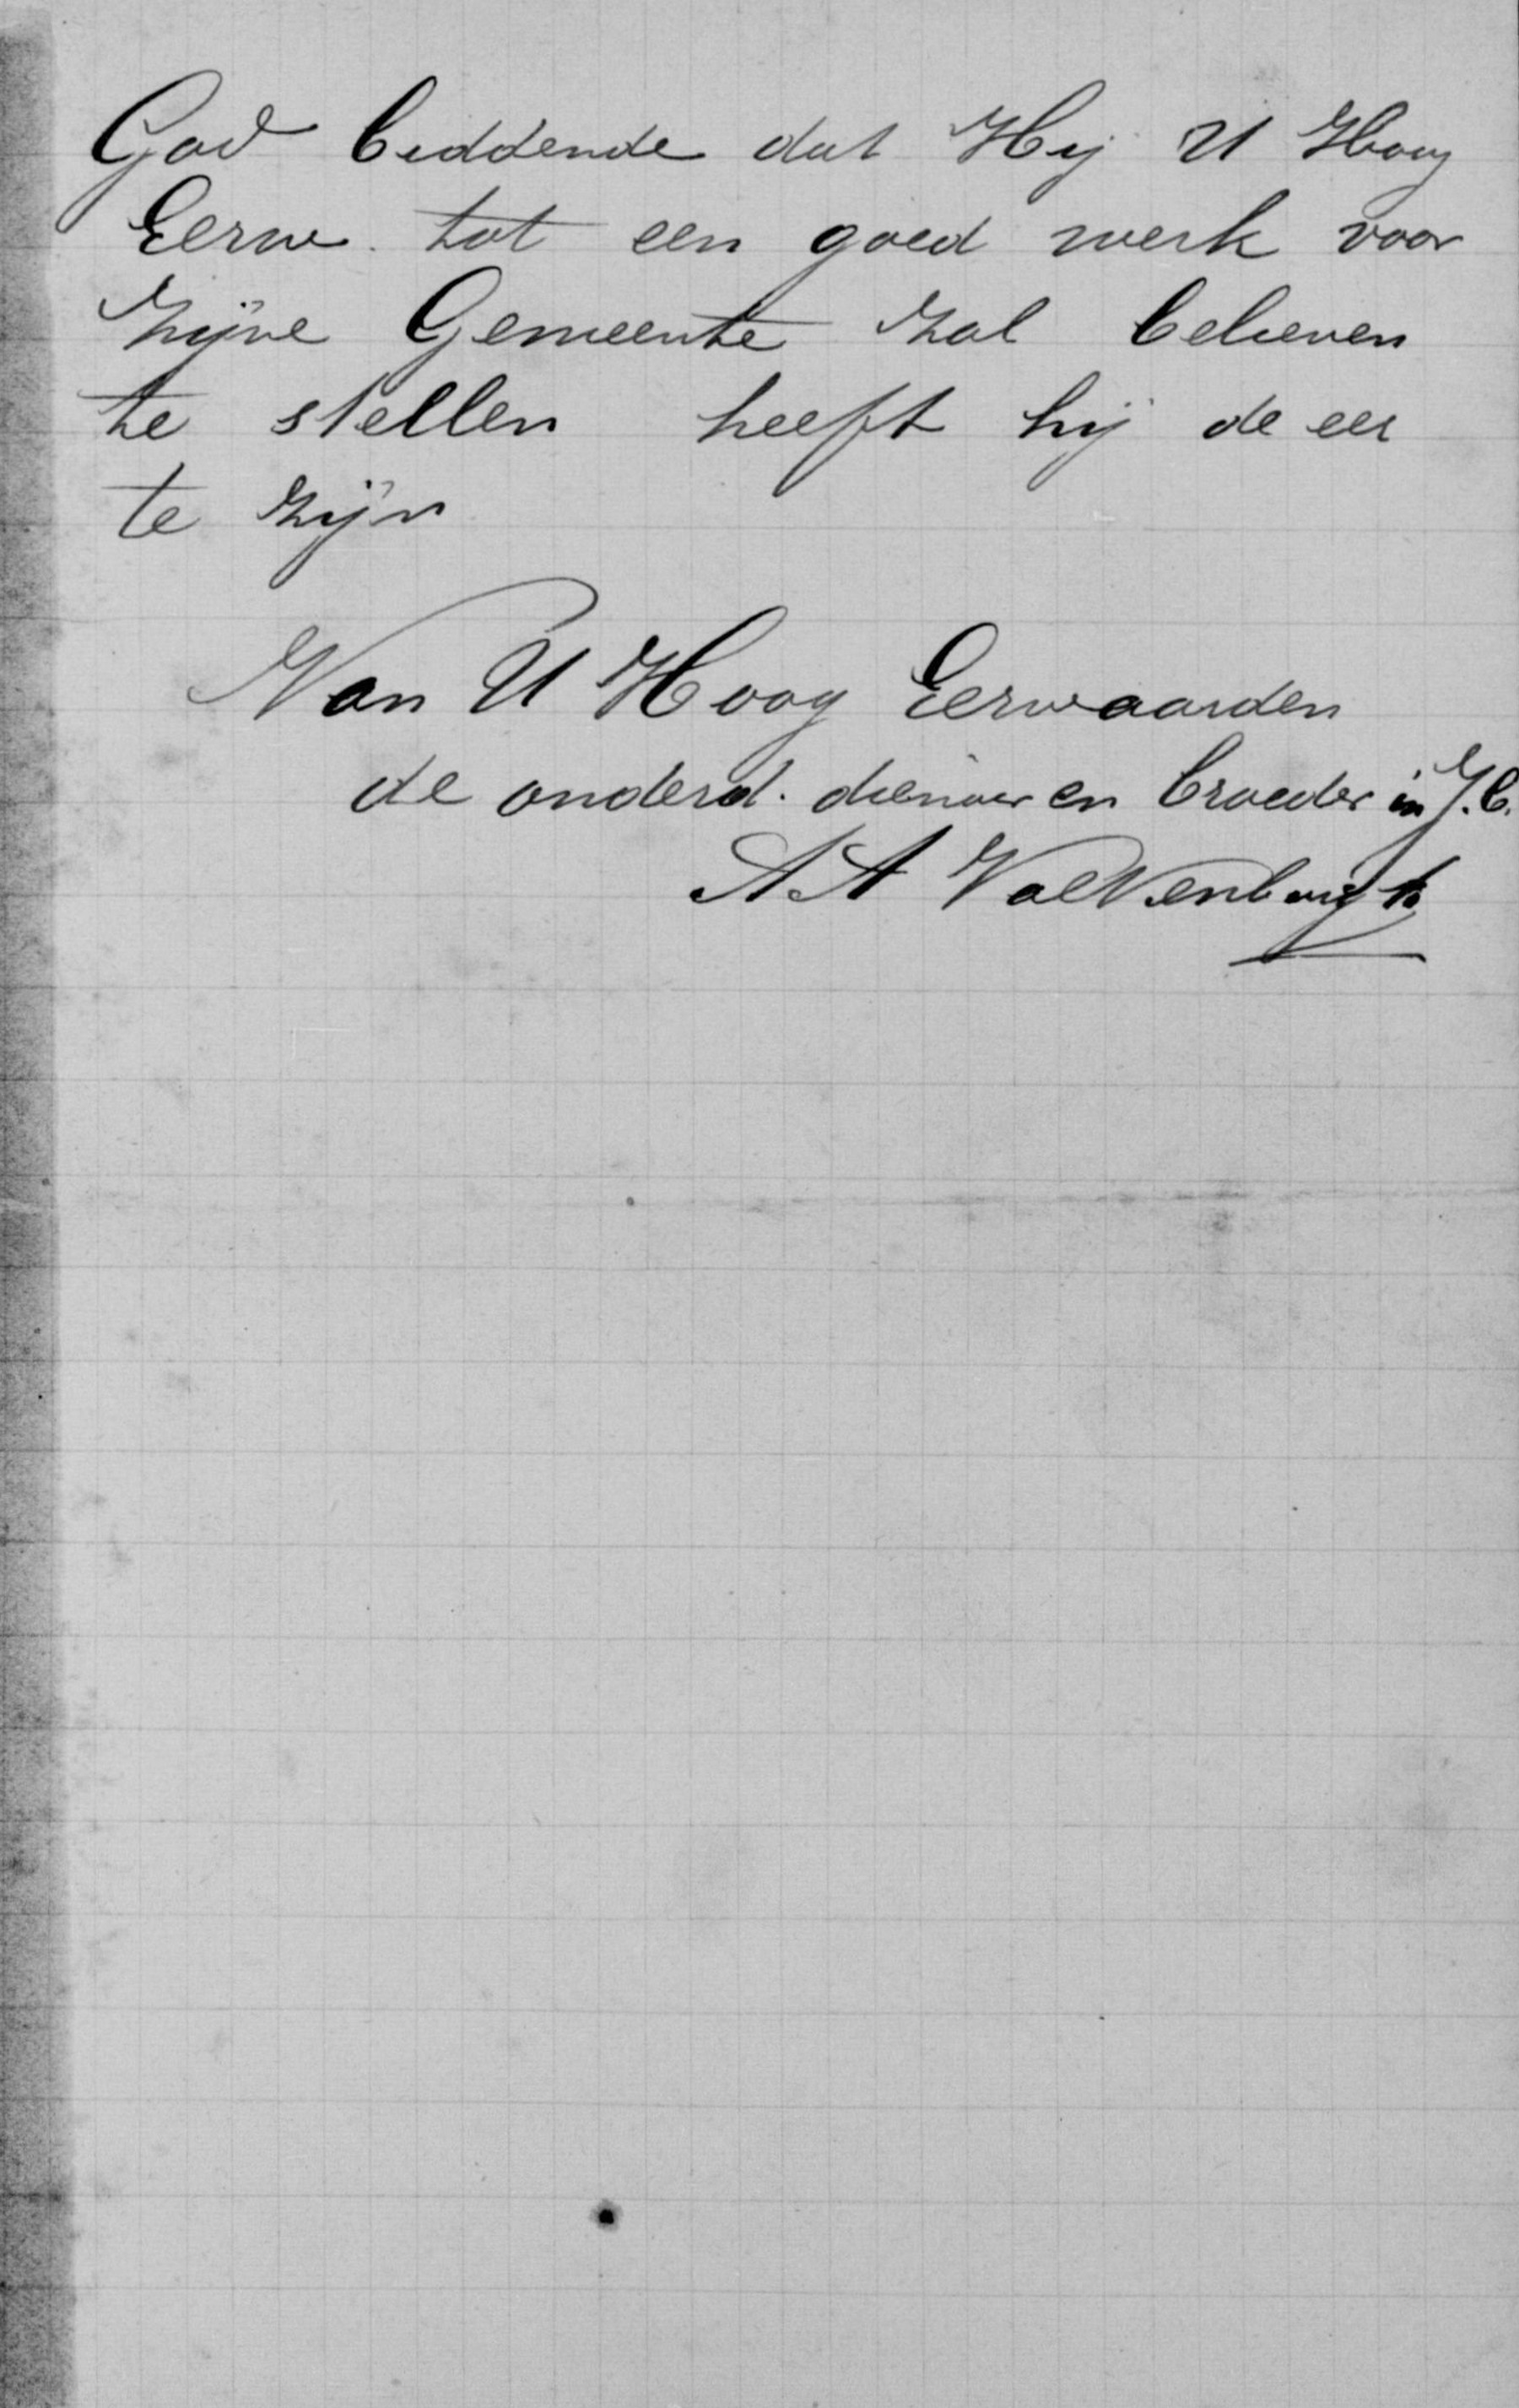 God biddende dat Hij U Hoog
Eerw. tot een goed werk voor
zijne Gemeente zal believen
te stellen heeft hij de eer
te zijn
Van U Hoog Eerwaarden
de onderd. dienaar en broeder in J. C.
A A Valkenburgh